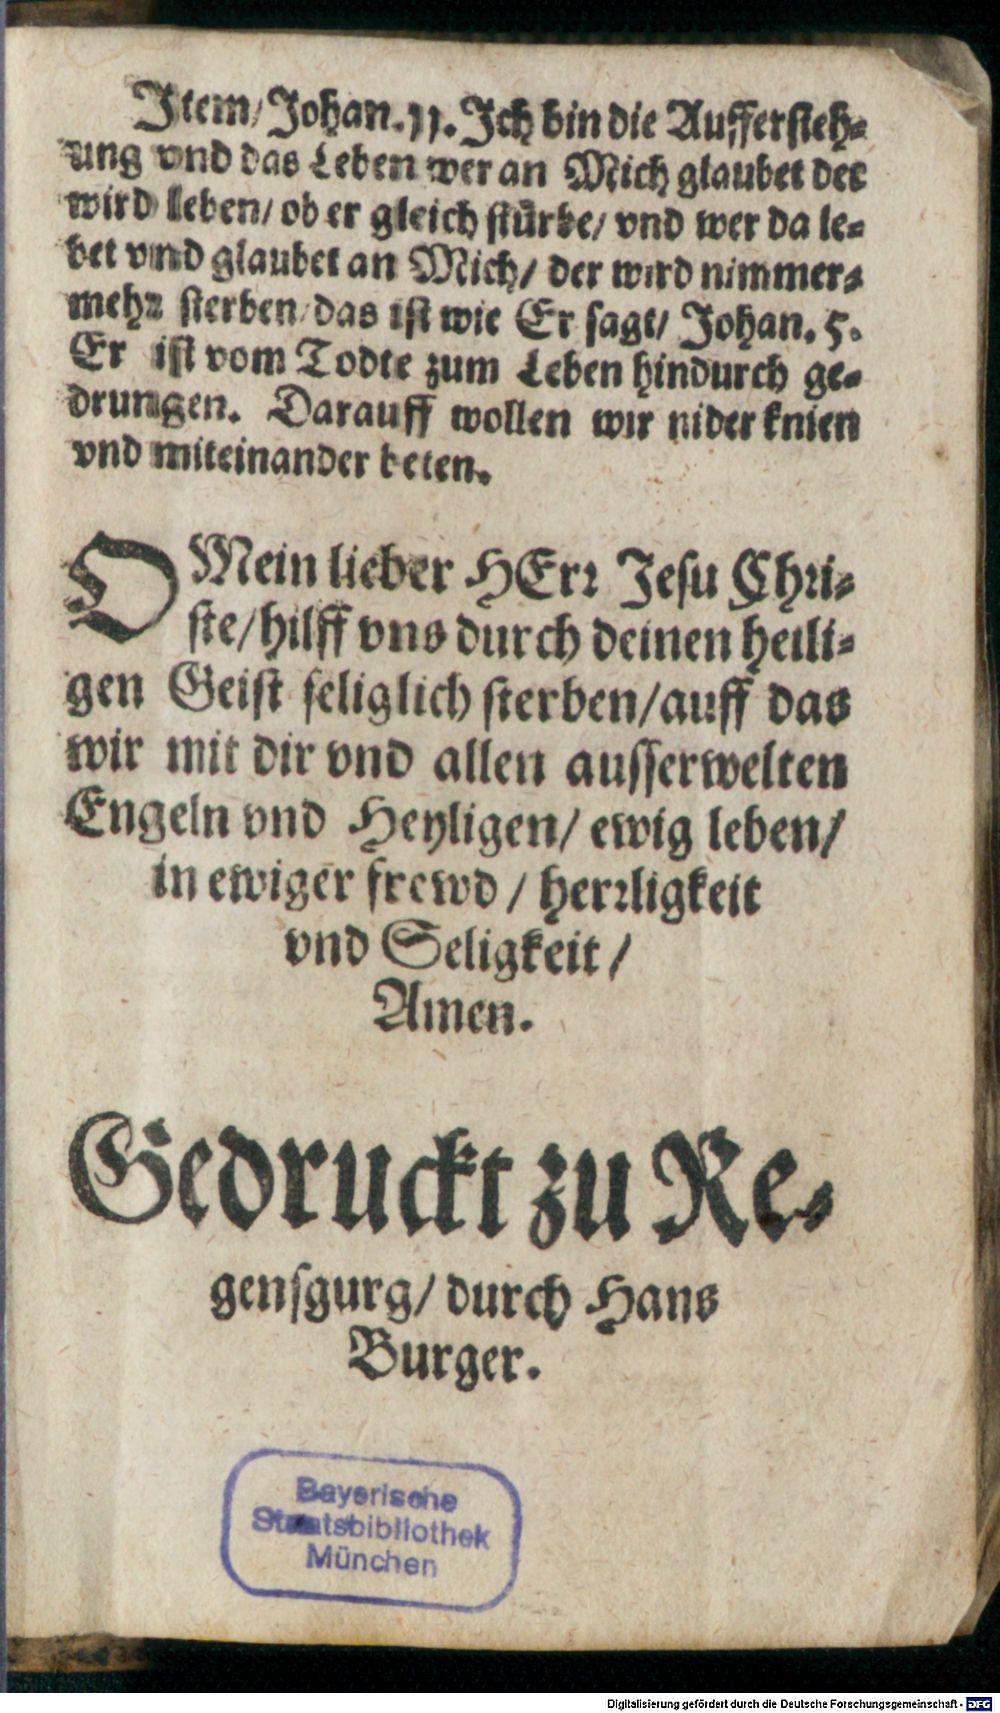 Item/ Johan. 11. Ich bin die Auffersteh-
ung vnd das Leben wer an Mich glaubet der
wird leben/ ob er gleich stürbe/ vnd wer da le-
bet vnd glaubet an Mich/ der wird nimmer-
mehr sterben/ das ist wie Er sagt/ Johan. 5.
Er ist vom Todte zum Leben hindurch ge-
drungen. Darauff wollen wir nider knien
vnd miteinander beten.
O Mein lieber HErr Jesu Chri-
ste/ hilff vns durch deinen heili-
gen Geist seliglich sterben/ auff das
wir mit dir vnd allen ausserwelten
Engeln vnd Heyligen/ ewig leben/
in ewiger frewd/ herrligkeit
vnd Seligkeit/
Amen.
Gedruckt zu Re-
gensgurg/ durch Hans
Burger.
Bayerische
Staatsbibliothek
München
Digitalisierung gefördert durch die Deutsche Forschungsgemeinschaft - DFG